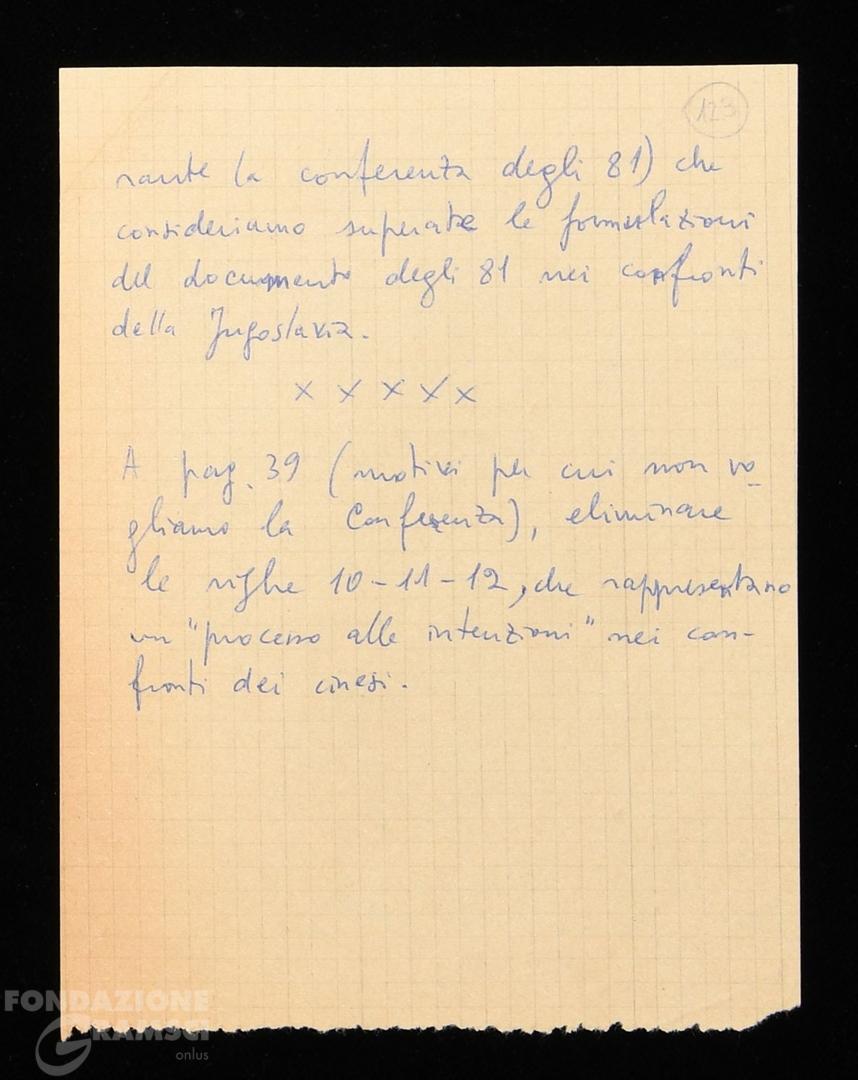 123
rante la conferenza degli 81) che
consideriamo superate le formulazioni
del documento degli 81 nei confronti
della Jugoslavia.
x x x x x
A pag. 39 (motivi per cui non vo-
gliamo la Conferenza), eliminare
le righe 10-11-12, che rappresentano
un "processo alle intenzioni" nei con-
fronti dei cinesi.
FONDAZIONE
GRAMSCI
onlus